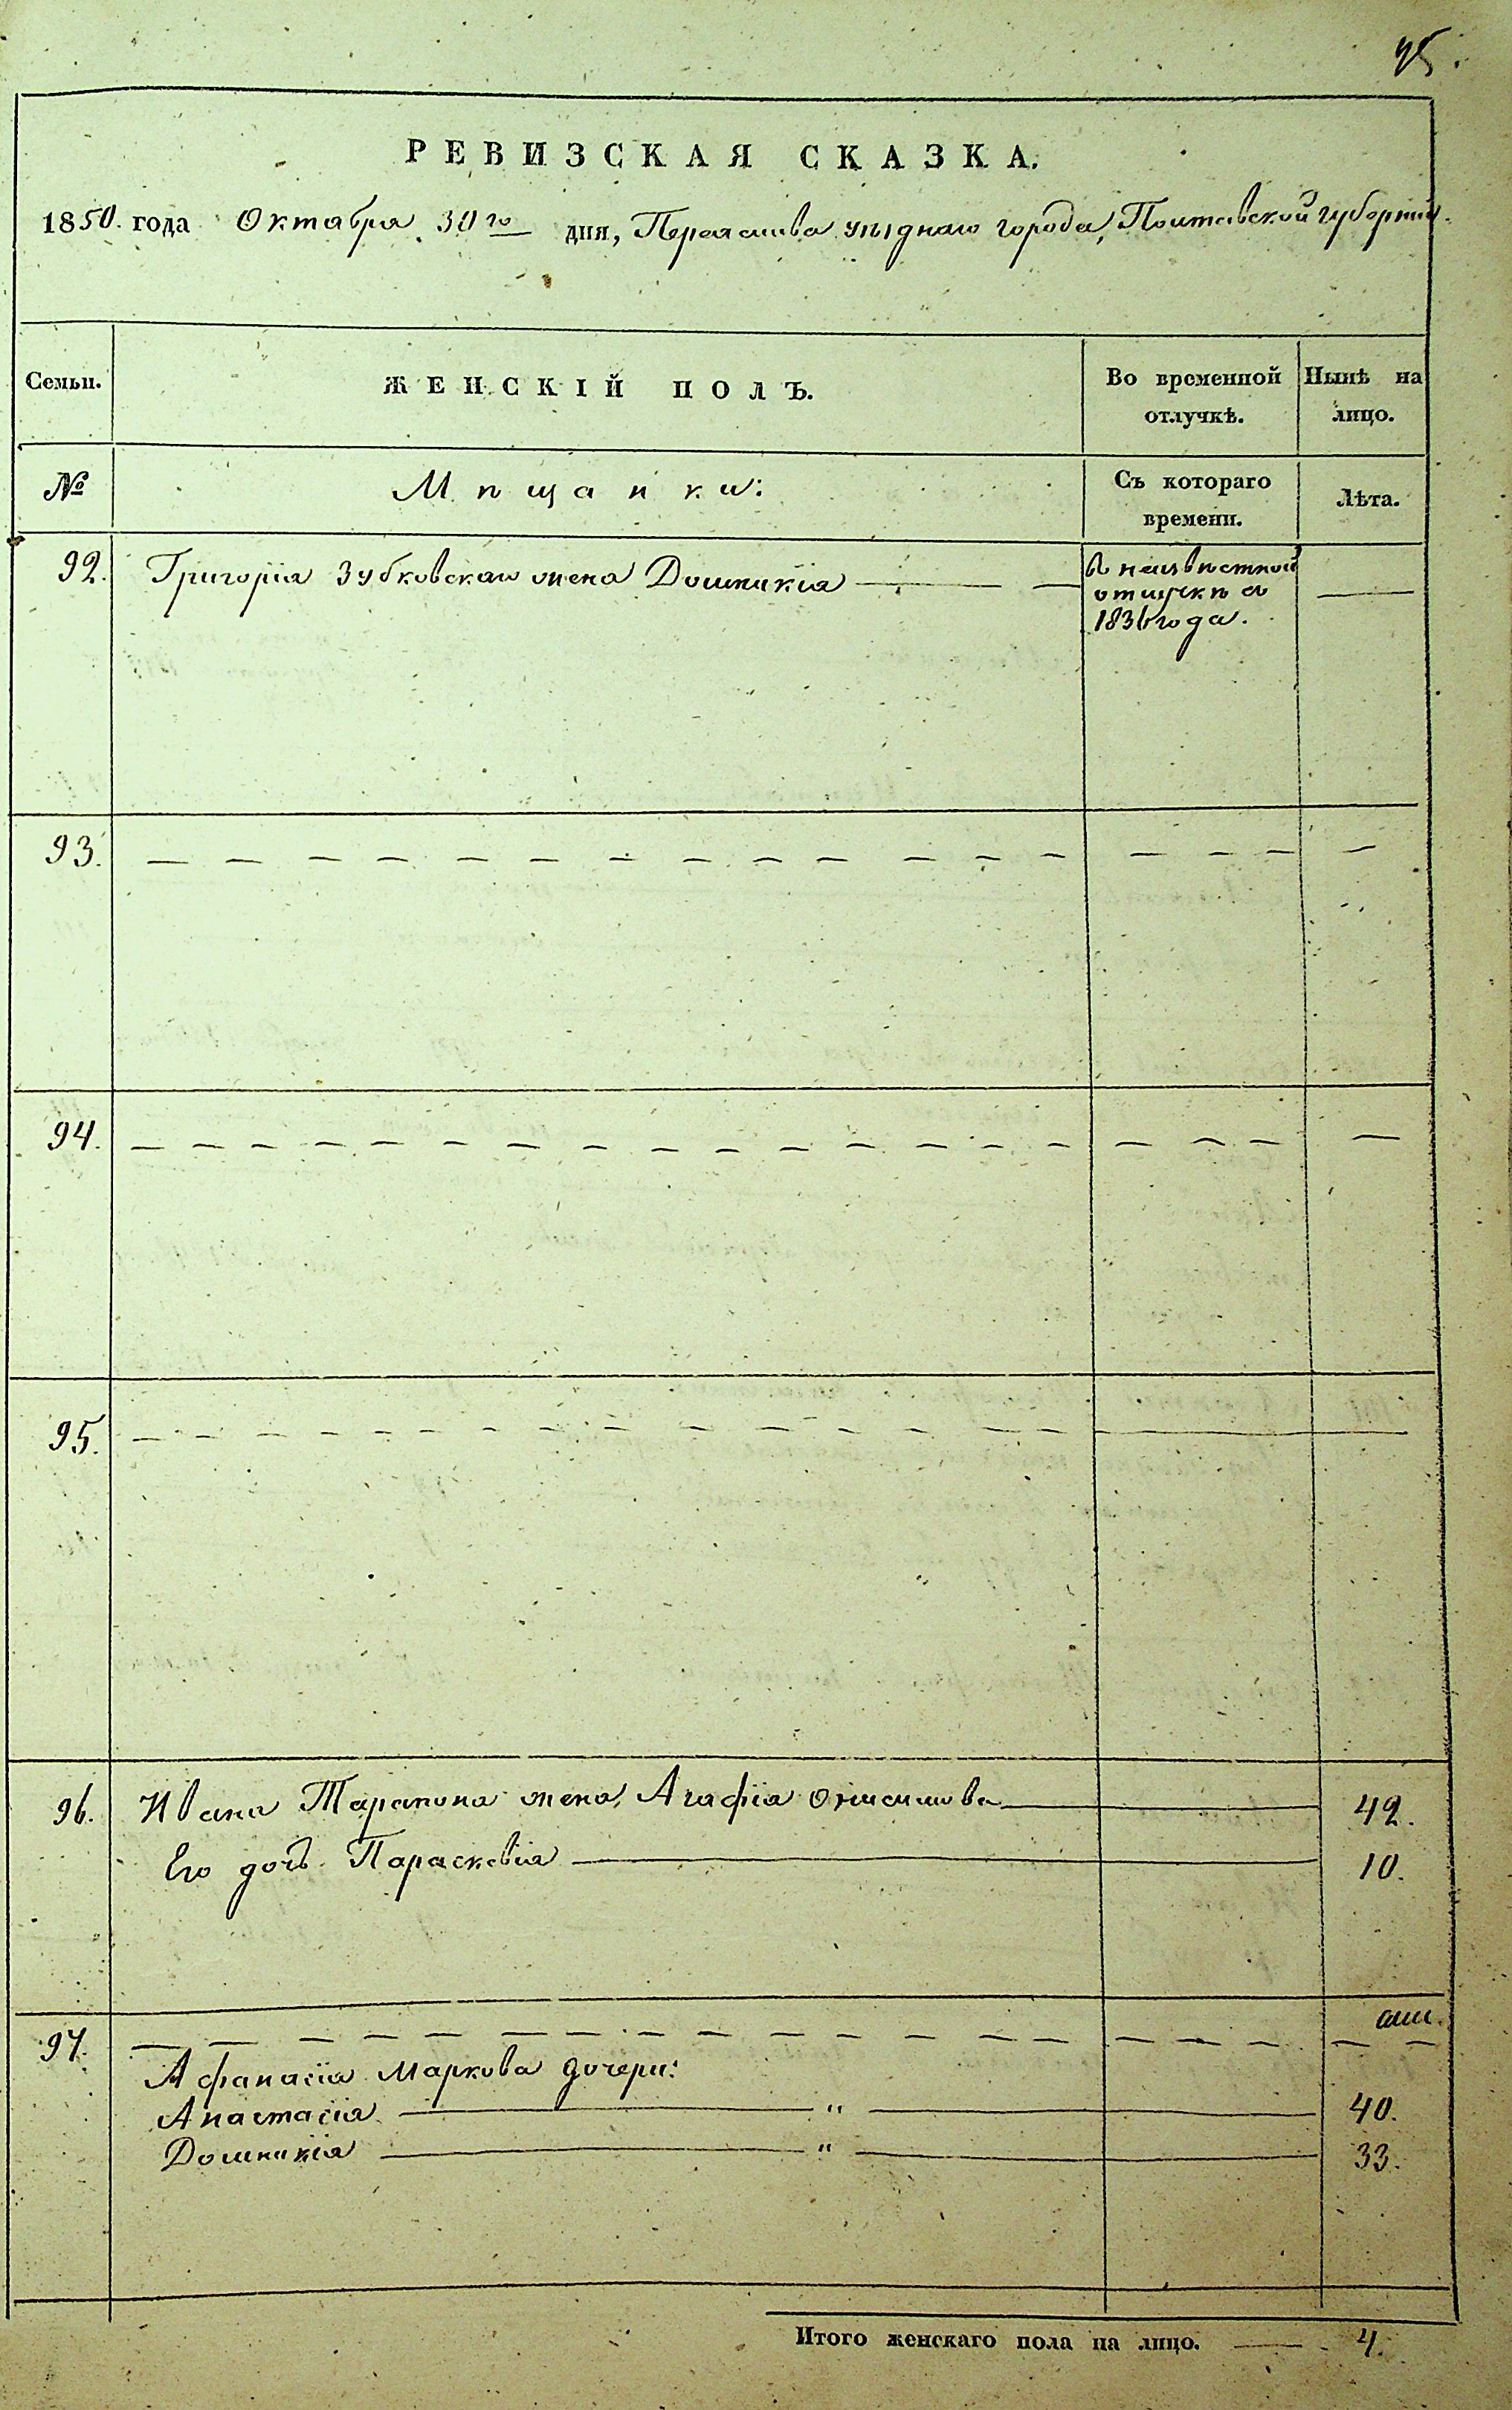 95.
РЕВИЗСКАЯ СКАЗКА.
1850. года Октября 30го дня, Переяслава уѣзднаго города, Полтавской губерніи.
Семьи.
ЖЕНСКІЙ ПОЛЪ.
Во временной отлучкѣ.
Нынѣ на лицо.
№
Мѣщанки:
Съ котораго времени.
Лѣта.
92. Григорія Зубковскаго жена Домникія
въ неизвѣстной
отлучкѣ съ
1836 года.
93.
94.
95.
96. Ивана Таранона жена Агафія Онисимова 42.
Его дочь Параскевія 10.
97.
Афанасія Маркова дочери:
Анастасія " 40.
Домникія " 33.
Итого женскаго пола на лицо. 4.